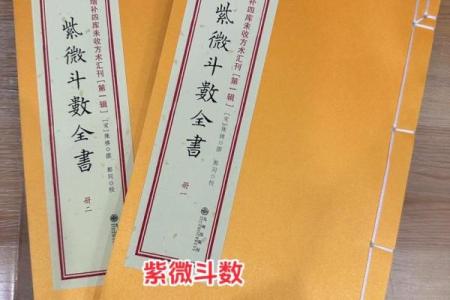 增补四库未收方术汇刊[第一辑]
紫微斗數全書
[宋]陳摶◎撰
郑同◎校
册二
增补四库未收方术汇刊[第一辑]
紫微斗數全書
[宋]陳摶◎撰
郑同◎校
册一
紫微斗数